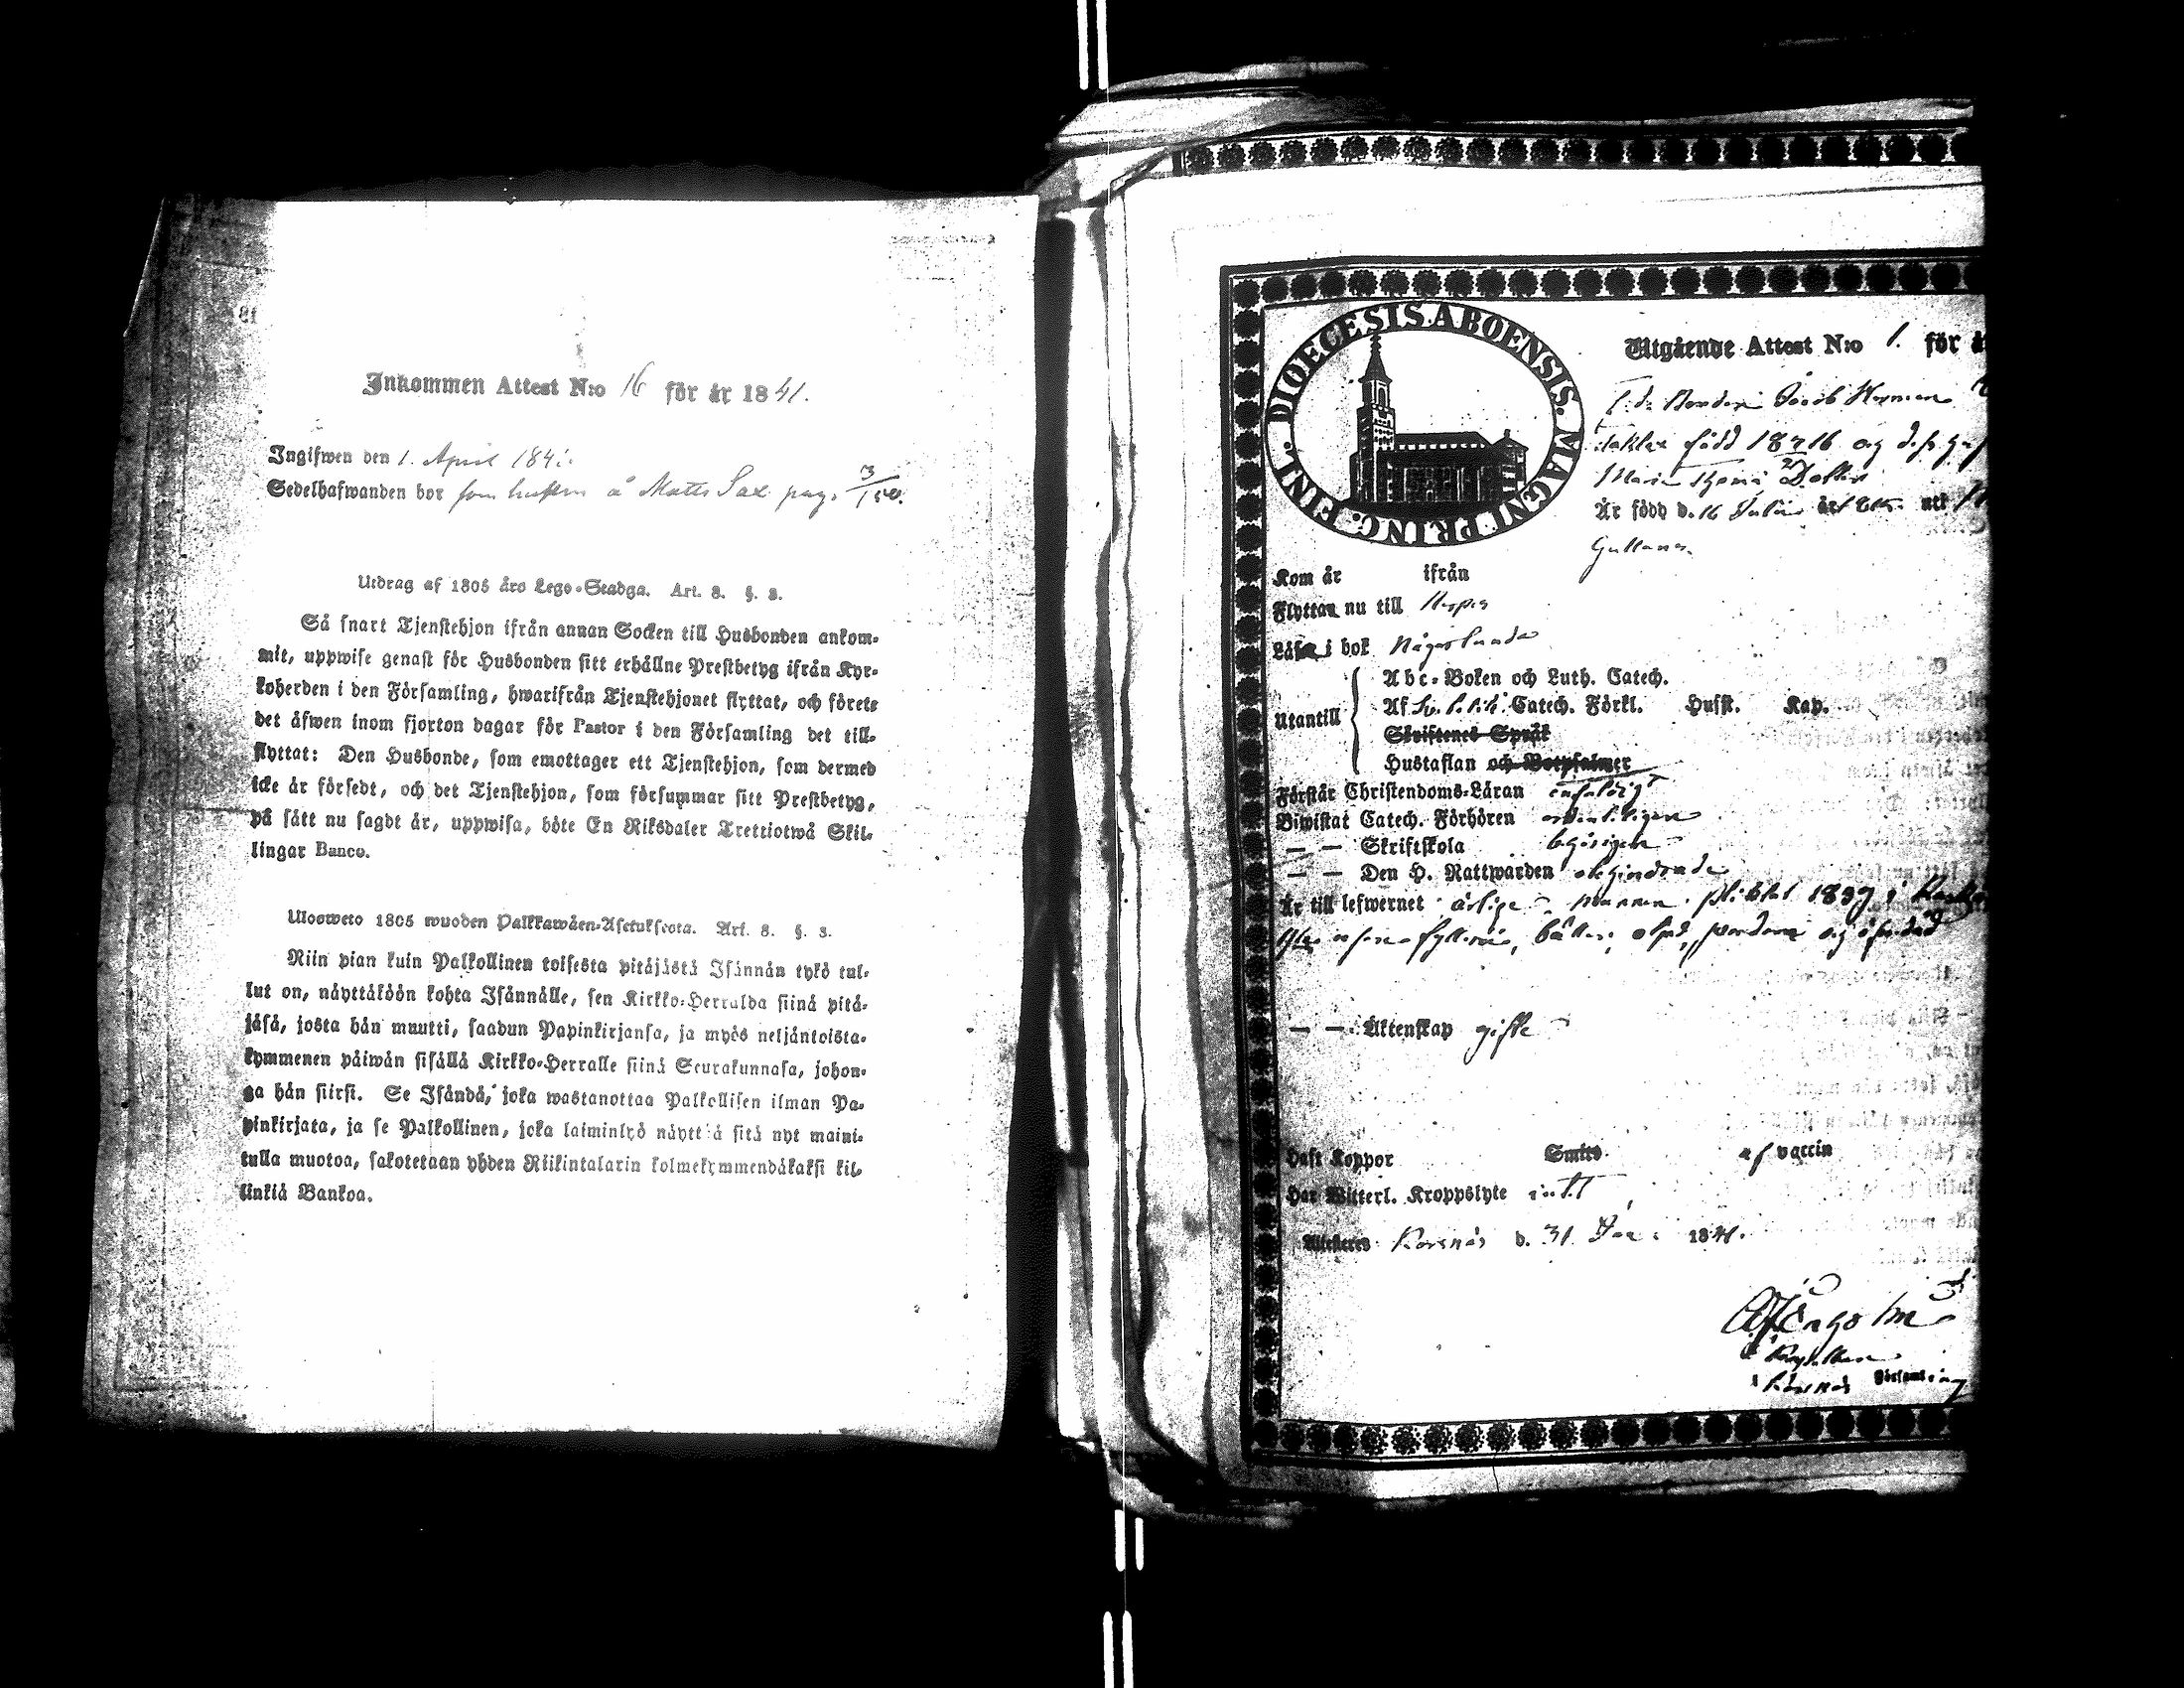 Inkommen Attest N:o 16 för år 1841.
Ingifwen den 1. April 1841.
Sedelhafwanden bor som å Matts Sax pag. 3/150.
Utdrag af 1805 års Lego-Stadga. Art. 8. §. 3.
Så snart Tjenstehjon ifrån annan Socken till Husbonden ankom-
mit, uppwise genast för Husbonden sitt erhållne Prestbetyg ifrån Kyr-
koherden i den Församling, hwarifrån Tjenstehjonet flyttat, och förete
det äfwen inom fjorton dagar för Pastor i den Församling det till-
flyttat: Den Husbonde, som emottager ett Tjenstehjon, som dermed
icke är försedt, och det Tjenstehjon, som försummar sitt Prestbetyg,
på sätt nu sagdt är, uppwisa, böte En Riksdaler Trettiotwå Skil-
lingar Banco.
Ulosweto 1805 wuoden Palkkawäen-Asetuksesta. Art. 8. §. 3.
Niin pian kuin Palkollinen toisesta pitäjästä Isännän tykö tul-
lut on, näyttäköön kohta Isännälle, sen Kirkko-Herralda siinä pitä-
jäsä, josta hän muutti, saadun Papinkirjansa, ja myös neljäntoista-
kymmenen päiwän sisällä Kirkko-Herralle siinä Seurakunnasa, johon-
ga hän siirsi. Se Isändä, joka wastanottaa Palkollisen ilman Pa-
pinkirjata, ja se Palkollinen, joka laiminlyö näyttää sitä nyt maini-
tulla muotoa, sakotetaan yhden Riikintalarin kolmekymmendäkaksi kil-
linkiä Bankoa.
DIOECESIS ABOENSIS. MAGNI PRINC. FINL.
Utgående Attest N:o 1. för å
F. d. Bonden Jacob Herman
född 18 16 och d. h.
Maria
Är född d. 16 Julii år 18 uti
Kom år ifrån
Flyttar nu till
Läser i bok någorlunda
Utantill
Abc-Boken och Luth. Catech.
Af Catech. Förkl. Husst. Kap.
Skriftenes Språk
Hustaflan och Botpsalmer
Förstår Christendoms-Läran enfaldigt
Biwistat Catech. Förhören ordentligen
— — Skriftskola begärigen
— — Den H. Nattwarden ohehindrade
Är till lefwernet ärlige, mannen pliktat 1839 i
fylleri, och
— — Äktenskap gifte
Haft Koppor Smitto af vaccin
Har Witterl. Kroppslyte intet
Attesteres Korsnäs d. 31 1841.
i Korsnäs Församling